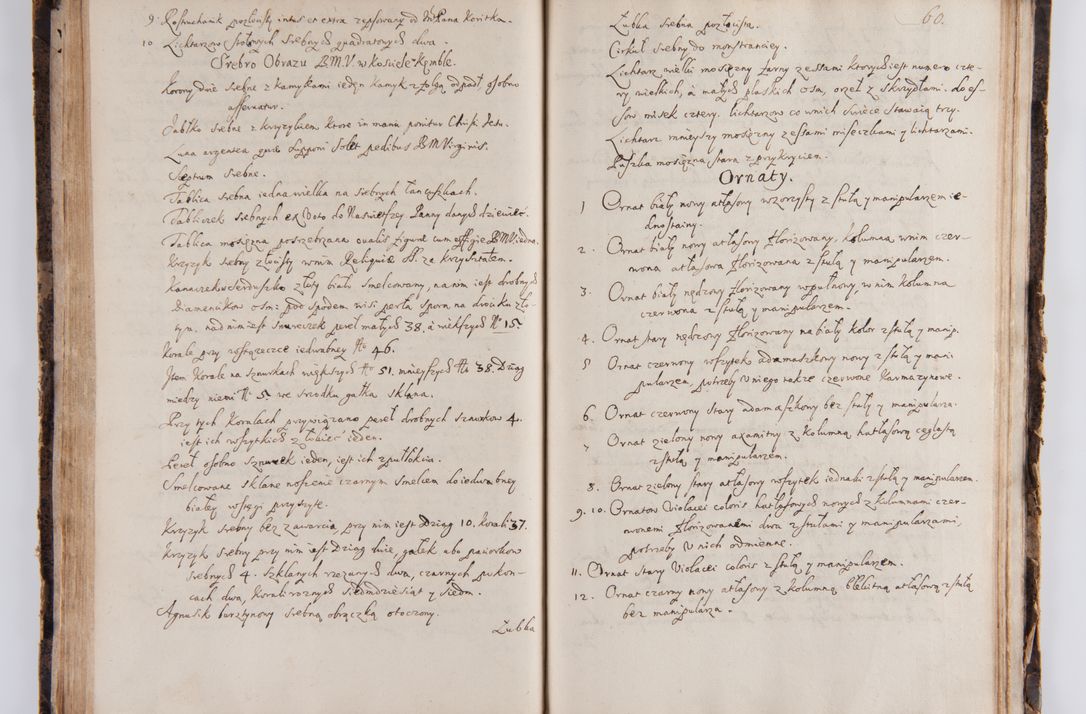 9. Roztruchanik pozłocisty intus et extra repsowany od Kertka.
10 Lichtarzow Stołowych srebnych quadratowych dwa.
Srebro Obrazu B.M.V. w kościele
Korony dwie srebne z kamykami ieden kamyk z folgą odpadł, osobno
asservatur.
Jabłko srebne z krzyżykiem ktore in manu ponitur Christi Jesu.
Luna argentea quae supponi solet pedibus BM Virginis.
Sceptrum srebne.
Tablica srebna iedna wielka na srebnych łancuszkach.
Tabliczek srebnych ex Voto do Naświetszey Panny danych dziewięć.
Tablica mosiężna posrzebrzana ovalis figurae cum effigie BMV. iedna.
Krzyżyk srebny złocisty w nim Reliquiae SS. za krzyształem.
Kanaczek w serduszko złoty biało smelcowany, na nim iest drobnych
diamencikow osm: pod spodem wisi perła spora na drociku zło-
tym. nad nim iest sznureczek pereł małych 38, a większych No 15.
Korale przy rostążeczce iedwabney No 46.
Item Korale na sznurkach większych No 51. mnieyszych No 38. Dziąg
między niemi No 5 we srzodku gałka sklana.
Przy tych Koralach przywiązano pereł drobnych sznurkow 4.
iest ich wszystkich z łokieć ieden.
Pereł osobno sznurek ieden, iest ich z pułłokcia.
Smelcowane sklane noszenie czarnym smelcem do iedwabney
białey wstęgi przyszyte.
Krzyżyk srebny bez zawarcia przy nim iest Dziąg 10. korali 37.
Krzyżyk srebny przy nim iest Dziąg dwie, gałek abo paciorkow
srebnych 4. szklanych rzezanych dwa, czarnych po kon-
cach dwa, Korali roznych siedmdziesiąt y siedm.
Agnusik bursztynowy srebną obrączką otoczony.
Łubka
60.
Łubka srebna pozłocista.
Cirkuł srebny do monstranciey.
Lichtarz wielki mosiężny farny z essami ktorych iest numero czte-
ry wielkich, a małych płaskich osm, orzeł z skrzydłami. do es-
sow misek cztery. lichtarzow co w nich swiece stawaią trzy.
Lichtarz mnieyszy mosiężny z essami miseczkami y lichtarzami.
Puszka mosiężna stara z przykryciem.
Ornaty.
1 Ornat biały nowy atłasowy wzorzysty z stułą y manipularzem ie-
dnostainy.
2. Ornat biały nowy atłasowy florizowany, Kolumna w nim czer-
wona atłasowa florizowana z stułą y manipularzem.
3. Ornat biały nędzny florizowany wpułnowy, w nim kolumna
czerwona z stułą y manipularzem.
4. Ornat stary nędzny florizowany na biały kolor z stułą y manip.
5 Ornat czerwony wszytek adamaszkowy nowy z stułą y mani
pularzem, potrzeby u niego także czerwone karmazynowe.
6. Ornat czerwony stary adamaszkowy bez stuły y manipularza.
7 Ornat zielony nowy axamitny z Kolumną hatłasową ceglastą
z stułą y manipularzem.
8. Ornat zielony stary atłasowy wszytek iednaki z stułą y manipularzem.
9. 10. Ornatow Violacei coloris hatłasowych nowych z kolumnami czer-
wonemi florizowanemi dwa z stułami y manipularzami,
potrzeby u nich odmienne.
11. Ornat stary Violacei coloris z stułą y manipularzem.
12. Ornat czarny nowy atłasowy z Kolumną błękitną atłasową z stułą
bez manipularza.